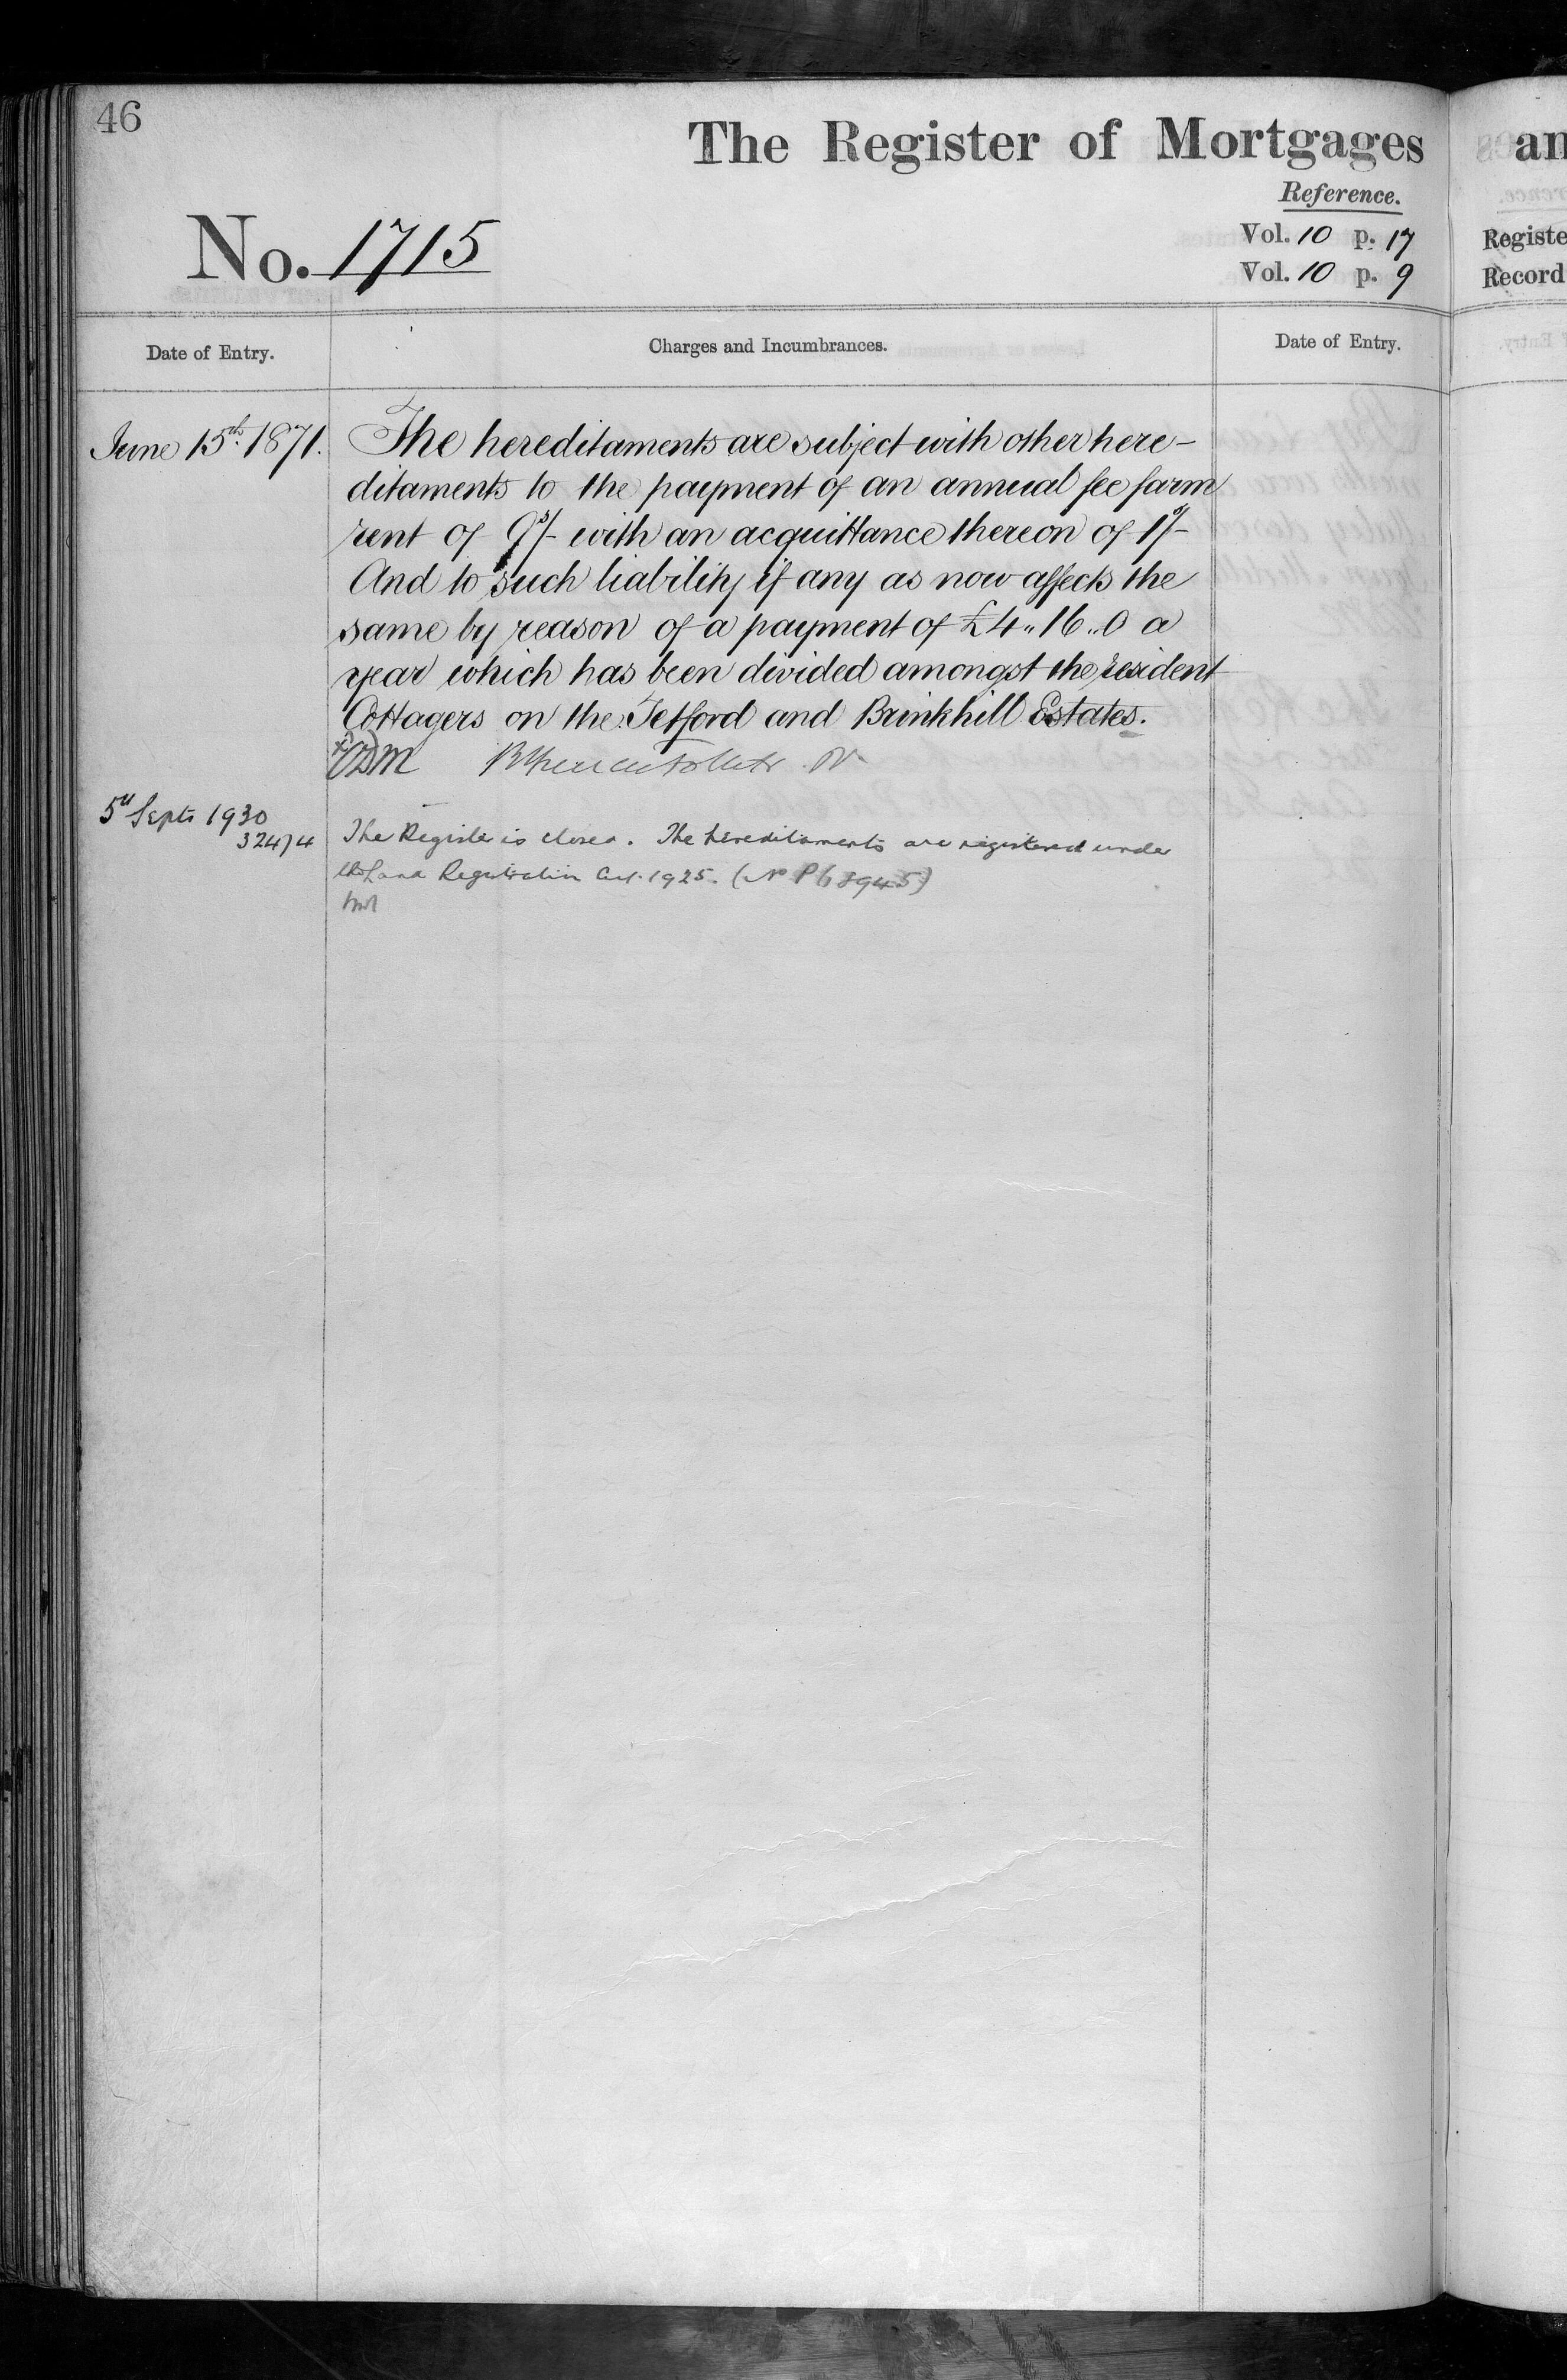 46
The Register of Mortgages
Reference.
No. 1715
Vol. 10 p. 17
Vol. 10 p. 9
Date of Entry.
Charges and Incumbrances.
Date of Entry.
June 15th. 1871.
The hereditaments are subject with other here-
ditaments to the payment of an annual fee farm
rent of 9s/- with an acquittance thereon of 1s/-
And to such liability if any as now affects the
same by reason of a payment of £4..16..0 a
year which has been divided amongst the resident
Cottagers on the Tetford and Brinkhill Estates.
5th Septr 1930
The Register is closed. The hereditaments are registered under
the Land Registration Act. 1925. (No P68945)
an
Registe
Record